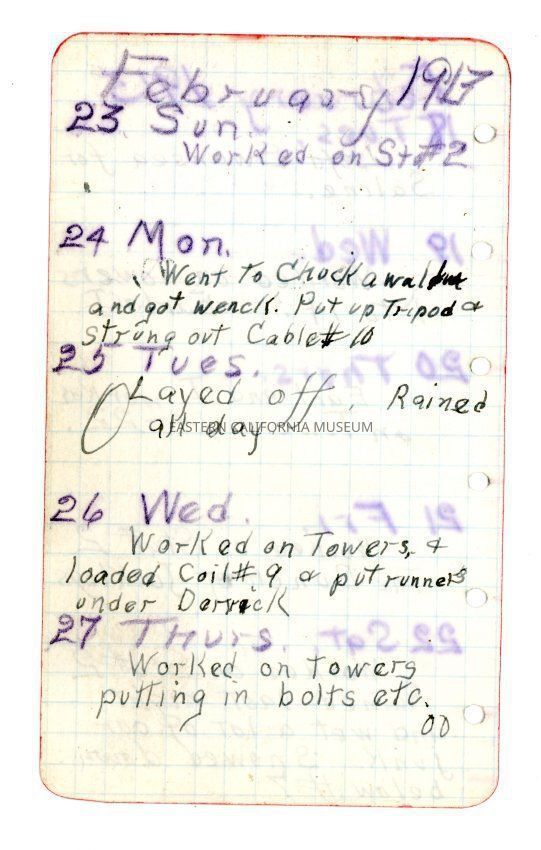 February 1913
23 Sun.
Worked on Sta# 2
24 Mon.
Went to Chuckawalla
and got wench. Put up Tripod &
strung out Cable# 10
25 Tues.
Layed off. Rained
all day
EASTERN CALIFORNIA MUSEUM
26 Wed.
Worked on Towers, &
loaded Coil# 9 & put runners
under Derrick
27 Thurs.
Worked on towers
putting in bolts etc.
00